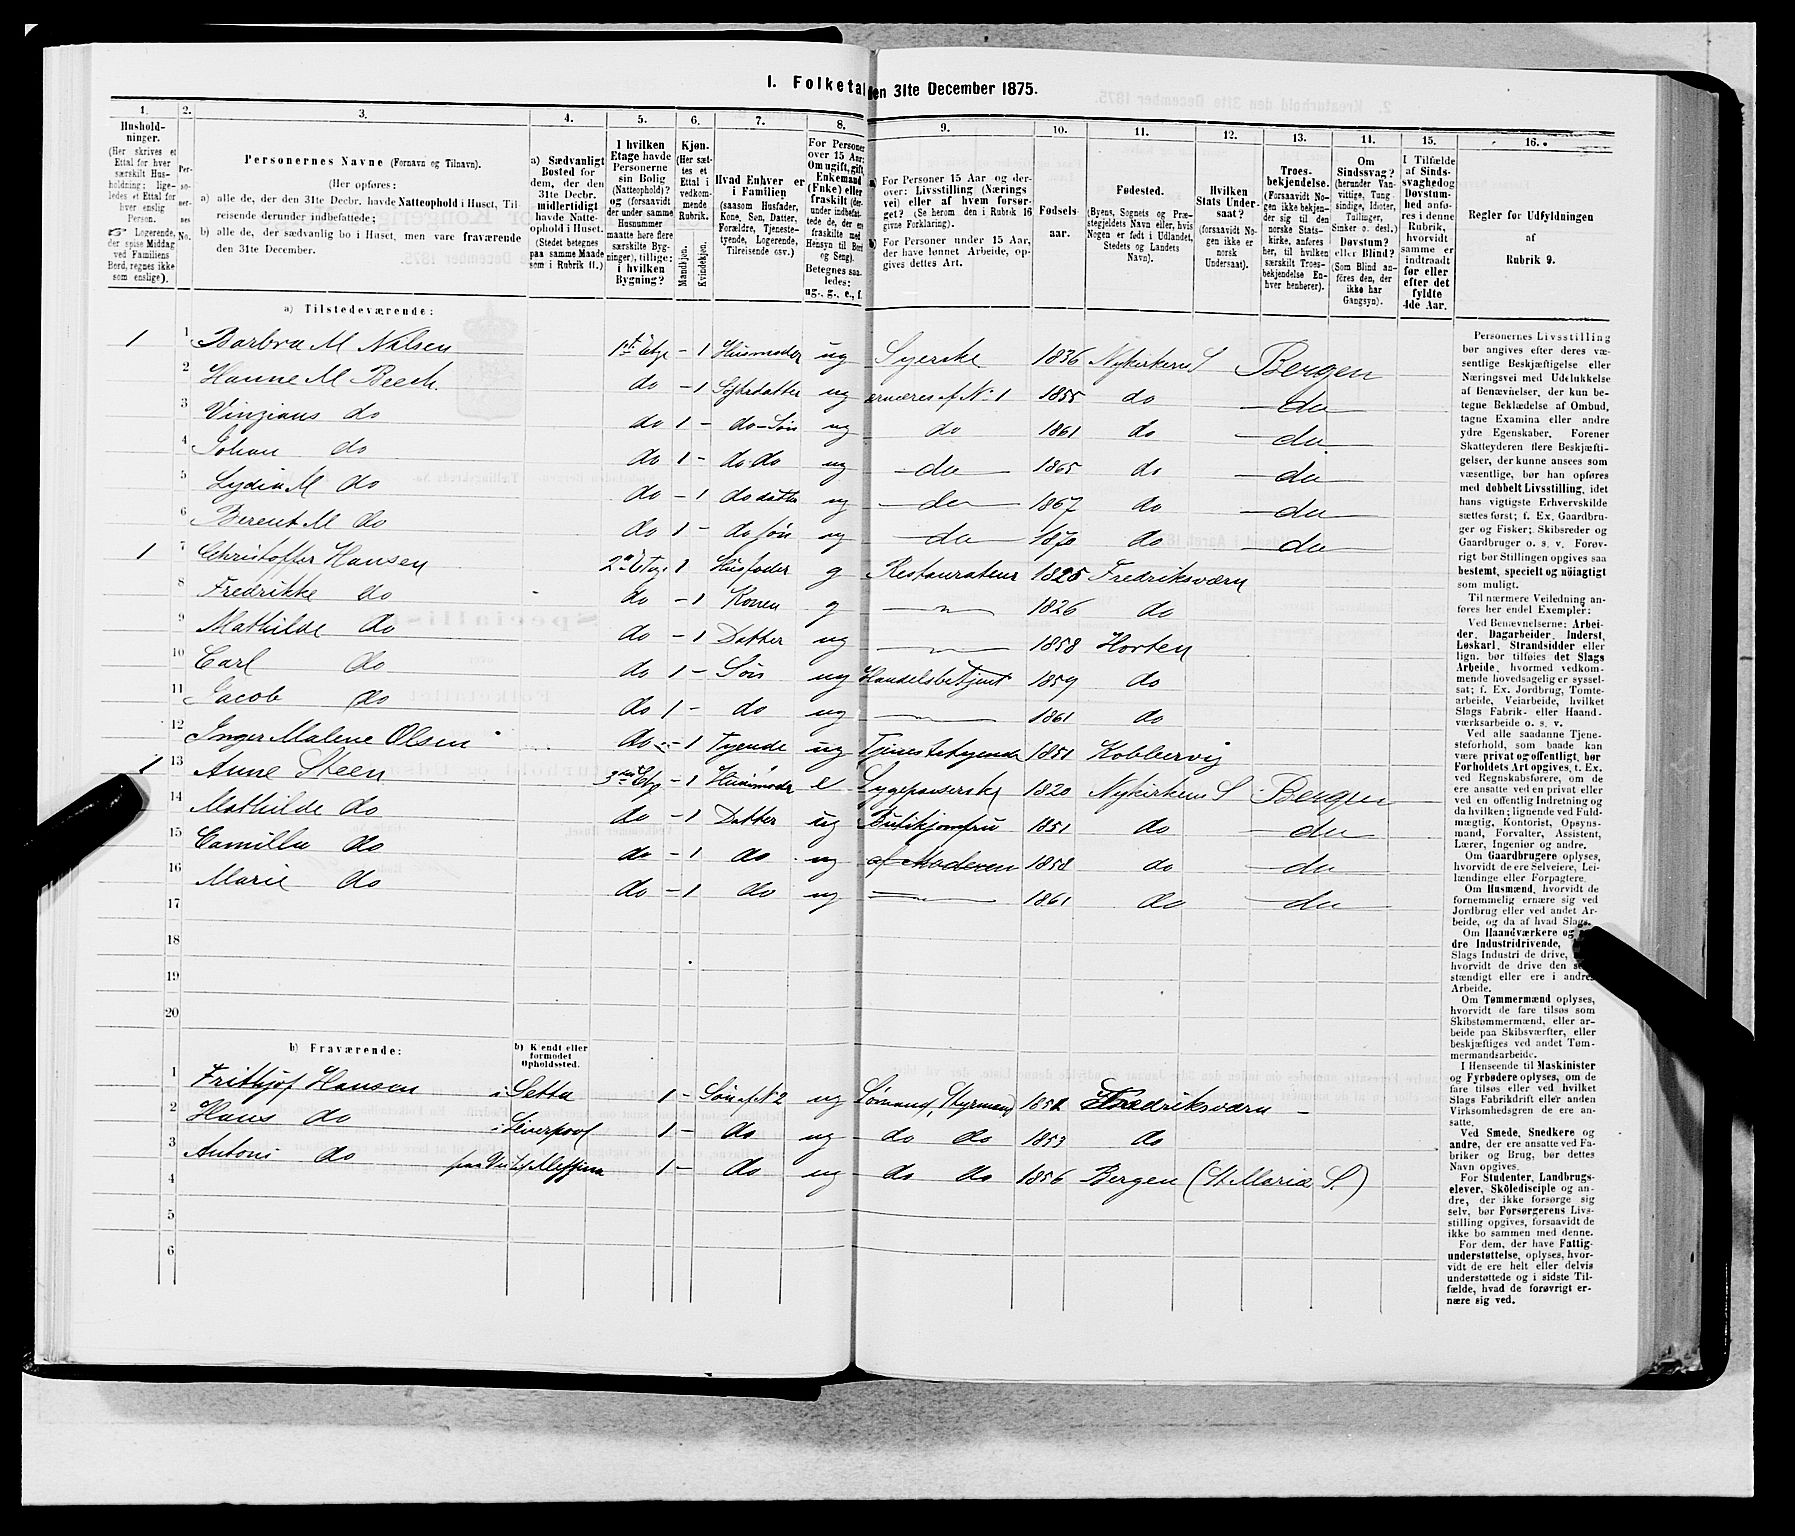 1. Folketal den 31te December 1875.
1. 2. 3. 4. 5. 6. 7. 8. 9. 10. 11. 12. 13. 14. 15. 16.
Husholdninger.
(Her skrives et Ettal for hver særskilt Husholdning; ligeledes et Ettal for hver enslig Person.
☞ Logerende, der spise Middag ved Familiens Bord, regnes ikke som enslige).
Personernes No.
Personernes Navne (Fornavn og Tilnavn).
(Her opføres:
a) alle de, der den 31te Decbr. havde Natteophold i Huset, Tilreisende derunder indbefattede;
b) alle de, der sædvanlig bo i Huset, men vare fraværende den 31te December.
a) Sædvanligt Bosted for dem, der den 31te Decbr. midlertidigt havde Natteophold i Huset.
(Stedet betegnes paa samme Maade som i Rubrik 11.)
I hvilken Etage havde Personerne sin Bolig (Natteophold)? og (forsaavidt der under samme Husnummer maatte høre flere særskilte Bygninger), tillige: i hvilken Bygning?
Kjøn. (Her sættes et Ettal i vedkommende Rubrik.
Mandkjøn. Kvindekjøn.
Hvad Enhver er i Familien
(saasom Husfader, Kone, Søn, Datter, Forældre, Tjenestetyende, Logerende, Tilreisende osv.)
For Personer over 15 Aar: Om ugift, gift, Enkemand (Enke) eller fraskilt (derunder indbefattede de, der ere fraskilte med Hensyn til Bord og Seng).
Betegnes saaledes: ug., g., e., f.
a) For Personer 15 Aar og derover: Livsstilling (Næringsvei) eller af hvem forsørget? (Se herom den i Rubrik 16 givne Forklaring).
b) For Personer under 15 Aar, der have lønnet Arbeide, opgives dettes Art.
Fødselsaar.
Fødested.
(Byens, Sognets og Præstegjeldets Navn eller, hvis Nogen er født i Udlandet, Stedets og Landets Navn).
Hvilken Stats Undersaat?
(forsaavidt Nogen ikke er norsk Undersaat).
Troesbekjendelse.
(Forsaavidt Nogen ikke bekjender sig til den norske Statskirke, anføres her, til hvilken særskilt Troesbekjendelse Enhver henhører).
Om Sindssvag?
(herunder Vanvittige, Tungsindige, Idioter, Tullinger, Sinker o. desl.)
Døvstum? eller Blind?
(Som Blind anføres den, der ikke har Gangsyn).
I Tilfælde af Sindssvaghed og Døvstumhed anføres i denne Rubrik, hvorvidt samme er indtraadt før eller efter det fyldte 4de Aar.
Regler for Udfyldningen af Rubrik 9.
a) Tilstedeværende:
1 1 Barbra M Nilsen 1st Etge – 1 Husmoder ug Syerske 1836 Nykirkens S Bergen
2 Hanne M Beech do – 1 ug ernæres af No 1 1855 do – do –
3 do do 1 – do – Søn ug do 1861 do – do –
4 Johan do do 1 – do do ug – do – 1865 do – do –
5 Lydia M do do – 1 do datter ug – do – 1867 do – do –
6 Berent M do do 1 – do søn ug – do – 1870 do – do –
1 7 Christoffer Hansen 2n Etge 1 Husfader g Restaurateur 1825 Fredriksværn
8 Fredrikke do do – 1 Konen g – " – 1826 do
9 Mathilde do do – 1 Datter ug – " – 1858 Horten
10 Carl do do 1 – Søn ug Handelsbetjent 1859 do
11 Jacob do do 1 – do ug – " – 1861 do
12 Inger Malene Olsen do – 1 Tyende ug Tjenestetyende 1851 Kobbervig
1 13 Anne Steen 3die Etg – 1 Husmoder e Sygepasserske 1820 Nykirkens S Bergen
14 Mathilde do do – 1 Datter ug Butikjomfru 1851 do – do –
15 Camilla do do – 1 do ug af Moderen 1858 do – do –
16 Marie do do – 1 do ug – " – 1861 do – do –
17
18
19
20
b) Fraværende:
b) Kjendt eller formodet Opholdssted.
1 Frithjof Hansen i Setta 1 – Søn af N 2 ug Sømand, Styrmand 1852 Fredriksværn –
2 Hans do i Liverpool 1 – do ug do do 1853 do
3 Antoni do paa Messina 1 – do ug do do 1856 Bergen (St. Maria S.)
4
5
6
Personernes Livsstilling bør angives efter deres væsentlige Beskjæftigelse eller Næringsvei med Udelukkelse af Benævnelser, der kun betegne Beklædelse af Ombud, tagne Examina eller andre ydre Egenskaber. Forener Skatteyderen flere Beskjæftigelser, der kunne ansees som væsentlige, bør han opføres med dobbelt Livsstilling, idet hans vigtigste Erhvervskilde sættes først; f. Ex. Gaardbruger og Fisker; Skibsreder og Gaardbruger o. s. v. Forøvrigt bør Stillingen opgives saa bestemt, specielt og nöiagtigt som muligt.
Til nærmere Veiledning anføres her endel Exempler:
Ved Benævnelserne: Arbeider, Dagarbeider, Inderst, Løskarl, Strandsidder eller lign. bør tilføies det Slags Arbeide, hvormed vedkommende hovedsagelig er sysselsat; f. Ex. Jordbrug, Tomtearbeide, Veiarbeide, hvilket Slags Fabrik- eller Haandværksarbeide o. s. v.
Ved alle saadanne Tjenesteforhold, som baade kan være privat og offentligt, bør Forholdets Art opgives, t. Ex. ved Regnskabsførere, om de ere ansatte ved en privat eller ved en offentlig Indretning og da hvilken; lignende ved Fuldmægtig, Kontorist, Opsynsmand, Forvalter, Assistent, Lærer, Ingeniør og andre.
Om Gaardbrugere oplyses, hvorvidt de ere Selveiere, Leilændinge eller Forpagtere.
Om Husmænd, hvorvidt de fornemmelig ernære sig ved Jordbrug eller ved andet Arbeide, og da af hvad Slags.
Om Haandværkere og andre Industridrivende, Slags Industri de drive, hvorvidt de drive den selvstændigt eller ere i andres Arbeide.
Om Tømmermænd oplyses, hvorvidt de fare tilsøs som Skibstømmermænd, eller arbeide paa Skibsværfter, eller beskjæftiges ved andet Tømmermandsarbeide.
I Henseende til Maskinister og Fyrbødere oplyses, om de fare tilsøs eller ved hvilket Slags Fabrikdrift eller anden Virksomhedsgren de ere ansatte.
Ved Smede, Snedkere og andre, der ere ansatte ved Fabriker og Brug, bør dettes Navn opgives.
For Studenter, Landbrugselever, Skoledisciple og andre, der ikke forsørge sig selv, bør Forsørgerens Livsstilling opgives, forsaavidt de ikke bo sammen med denne.
For dem, der have Fattigunderstøttelse, oplyses, hvorvidt de ere helt eller delvis understøttede og i sidste Tilfælde, hvad de forøvrigt ernære sig ved.